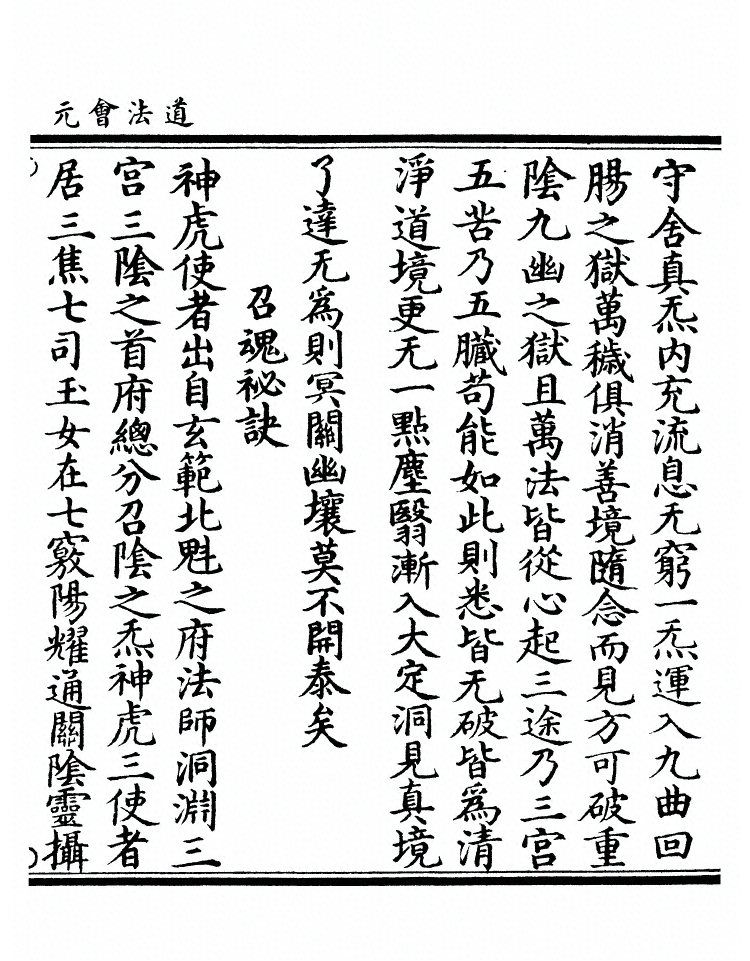 道法會元
守舍真炁内充流息无窮一炁運入九曲回
腸之獄萬穢俱消善境隨念而見方可破重
陰九幽之獄且萬法皆從心起三途乃三宫
五苦乃五臟苟能如此則悉皆无破皆爲清
淨道境更无一點塵翳漸入大定洞見真境
了達无爲則冥關幽壤莫不開泰矣
召魂祕訣
神虎使者出自玄範北魁之府法師洞淵三
宫三陰之首府總分召陰之炁神虎三使者
居三焦七司玉女在七竅陽耀通關陰靈攝